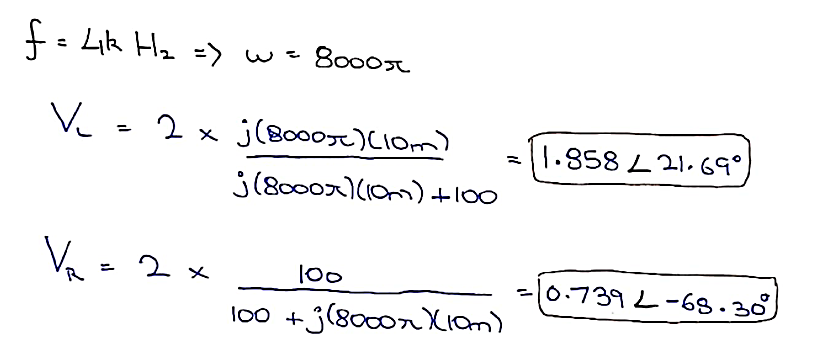 f = 4k Hz => ω = 8000π
V_L = 2 × j(8000π)(10m) / j(8000π)(10m) + 100 = 1.858 ∠ 21.69°
V_R = 2 × 100 / 100 + j(8000π)(10m) = 0.739 ∠ -68.30°